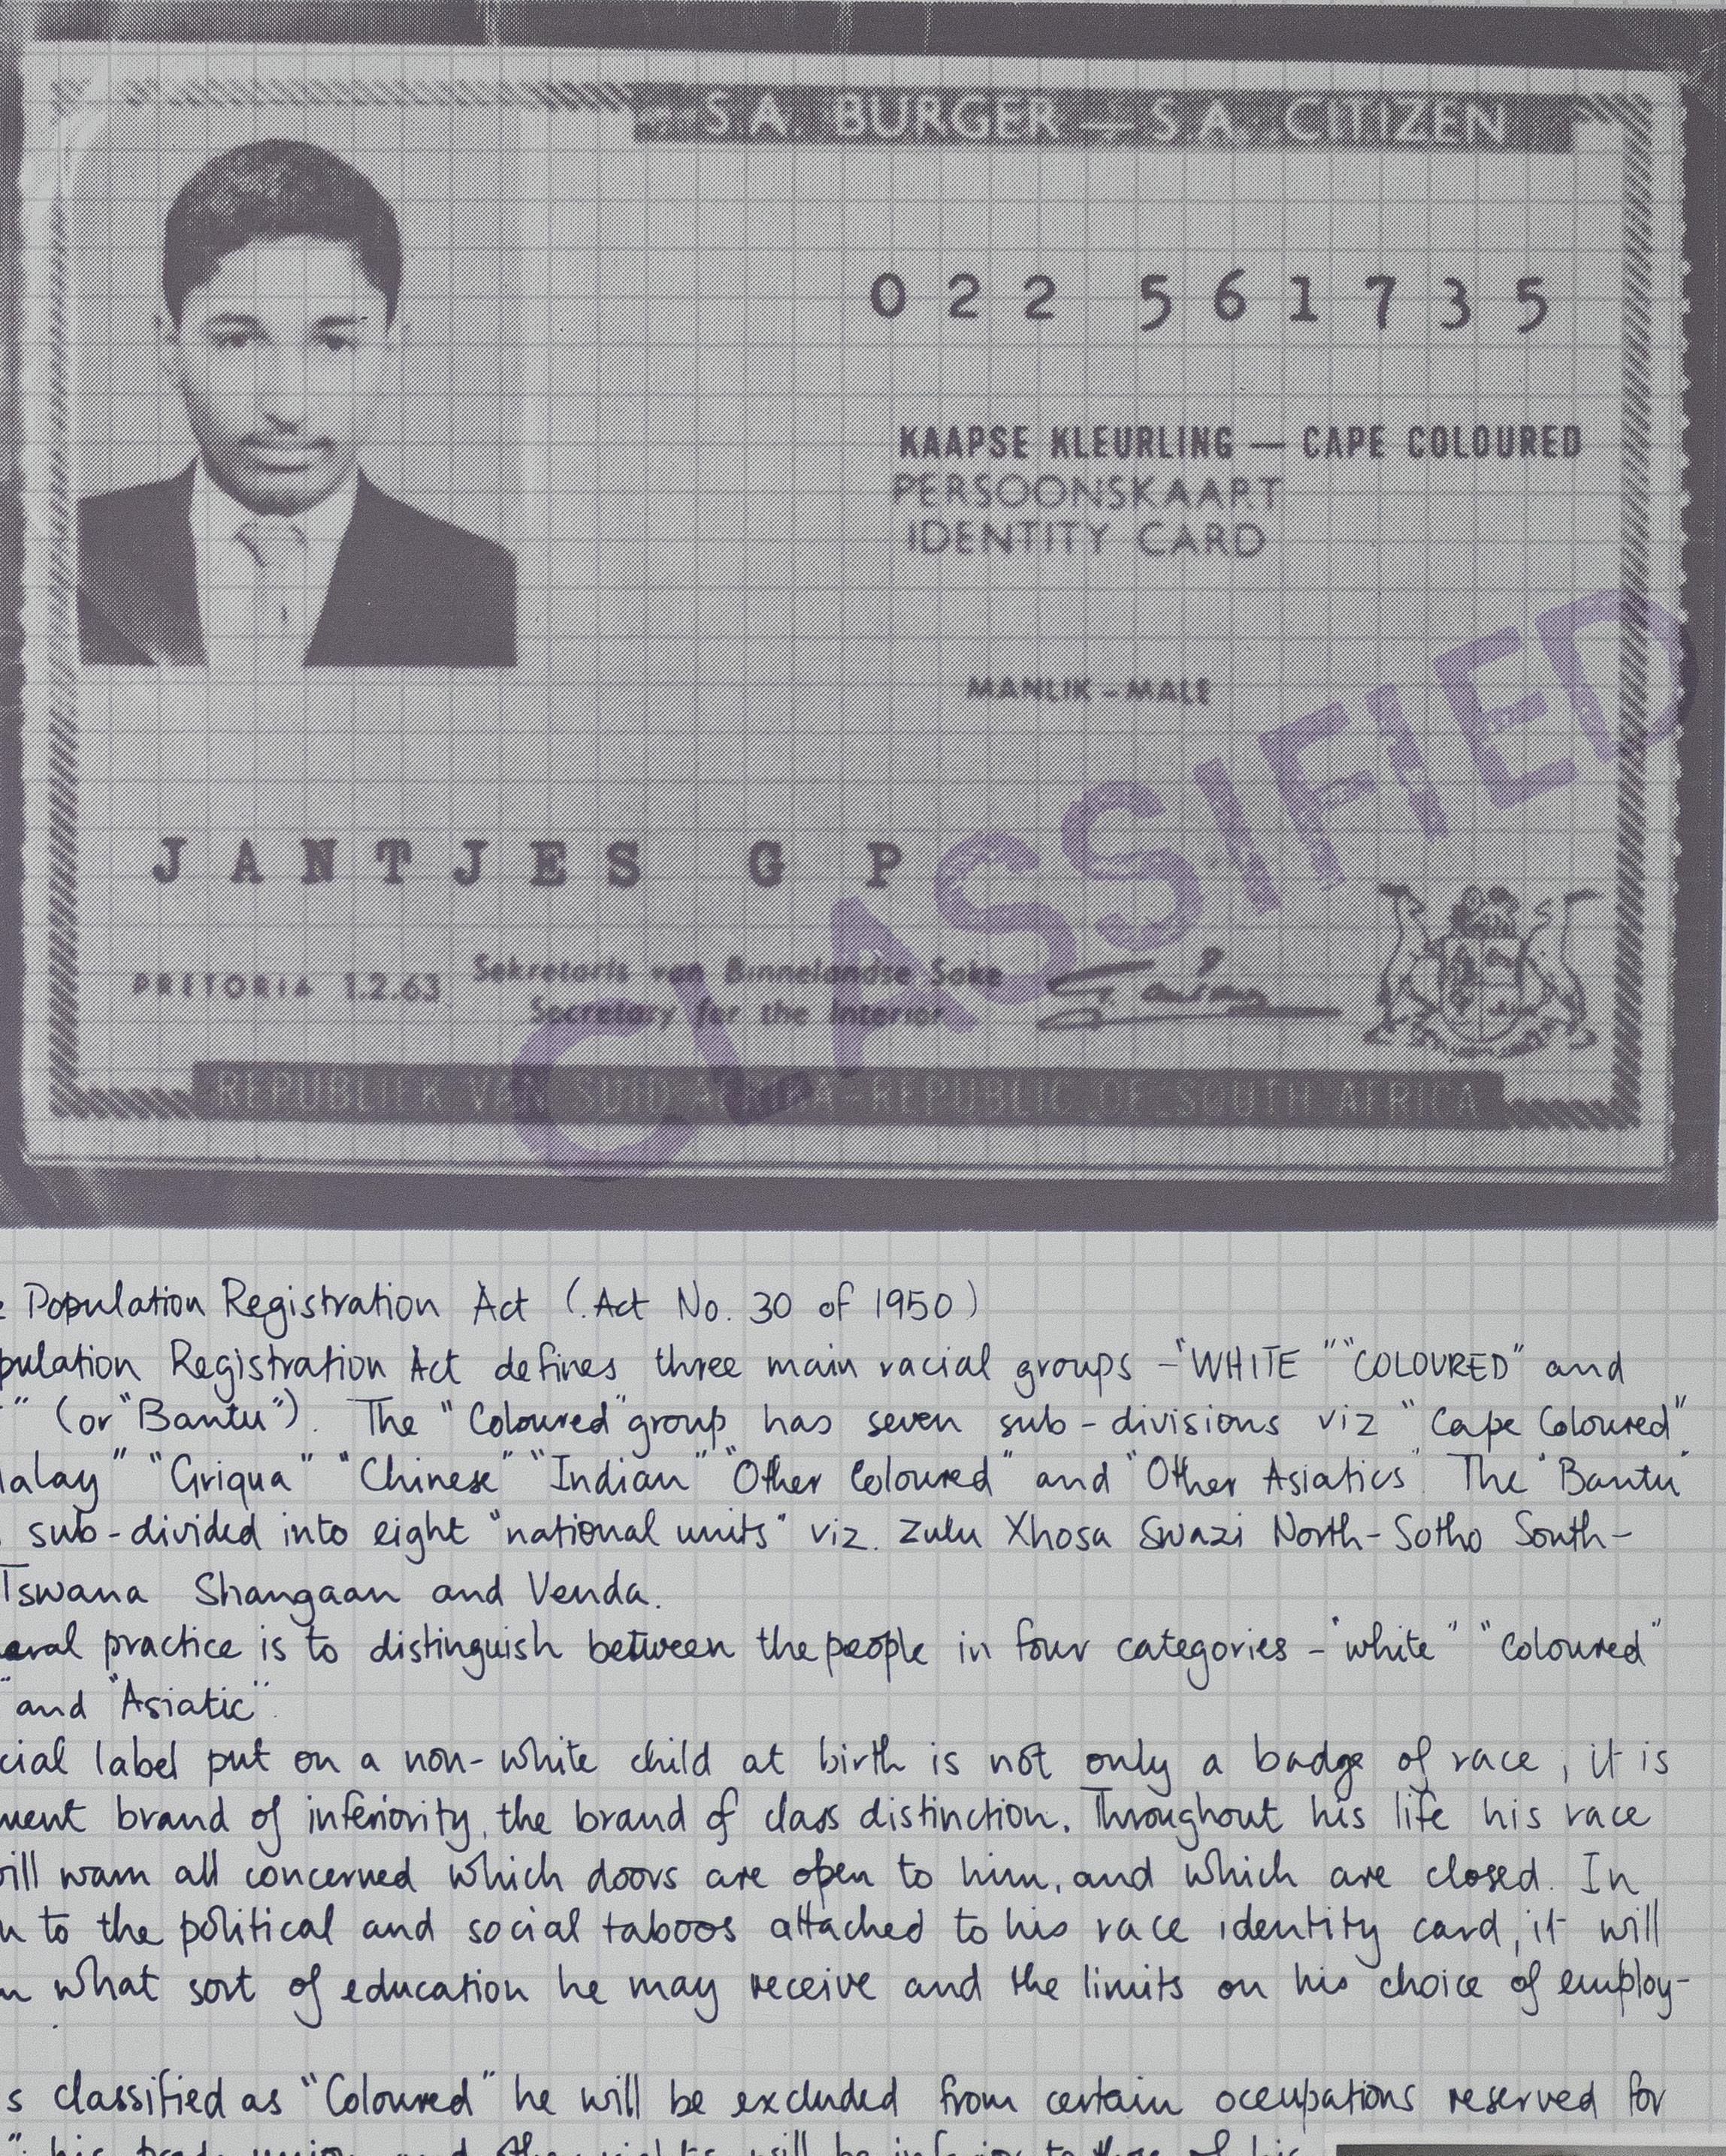 S.A. BURGER — S.A. CITIZEN
022 561735
KAAPSE KLEURLING — CAPE COLOURED
PERSOONSKAART
IDENTITY CARD
MANLIK – MALE
JANTJES G P
PRETORIA 1.2.63
Sekretaris van Binnelandse Sake
Secretary for the Interior
REPUBLIEK VAN SUID-AFRIKA–REPUBLIC OF SOUTH AFRICA
CLASSIFIED
Population Registration Act (Act No. 30 of 1950)
pulation Registration Act defines three main racial groups – "WHITE" "COLOURED" and
" (or "Bantu"). The "Coloured" group has seven sub-divisions viz "Cape Coloured"
alay" "Griqua" "Chinese" "Indian" "Other Coloured" and "Other Asiatics". The "Bantu"
sub-divided into eight "national units" viz. Zulu Xhosa Swazi North-Sotho South-
Tswana Shangaan and Venda.
eral practice is to distinguish between the people in four categories – "white" "Coloured"
" and "Asiatic".
cial label put on a non-white child at birth is not only a badge of race, it is
nent brand of inferiority, the brand of class distinction. Throughout his life his race
ill warn all concerned which doors are open to him, and which are closed. In
n to the political and social taboos attached to his race identity card, it will
n what sort of education he may receive and the limits on his choice of employ-
s classified as "Coloured" he will be excluded from certain occupations reserved for
his trade union and other rights will be inferior to those of his